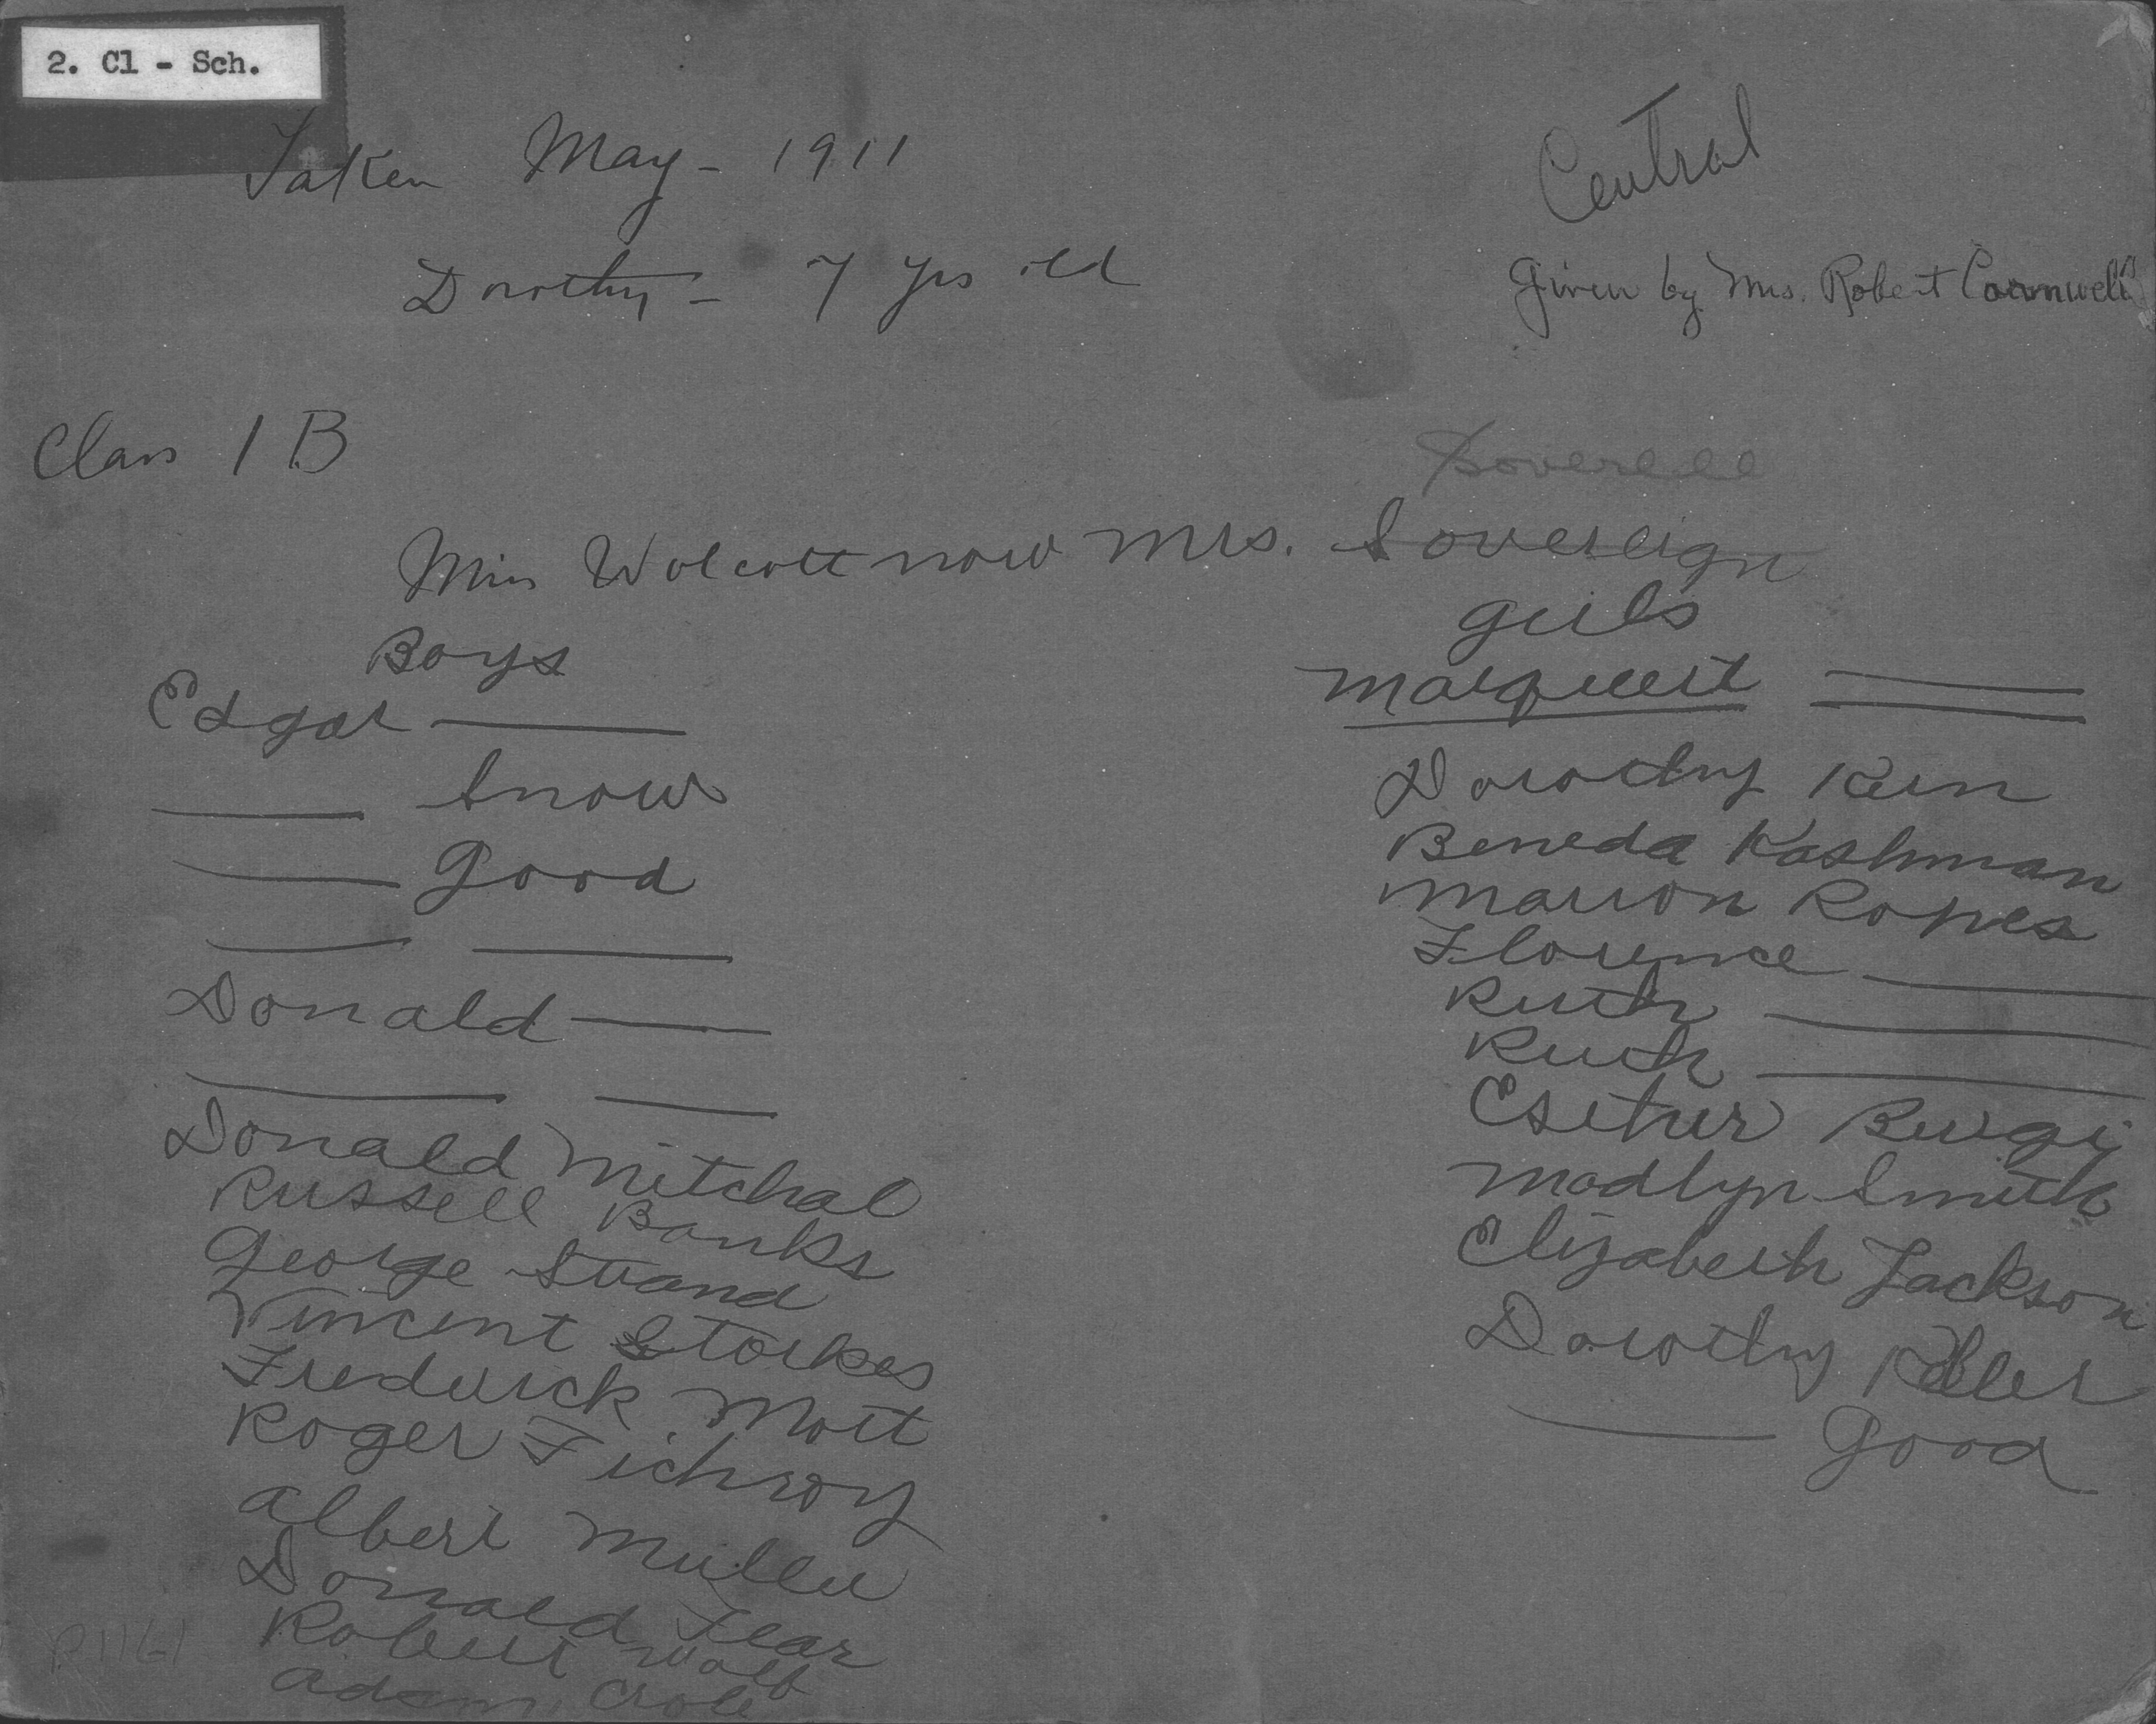 2. Cl - Sch.
Taken May - 1911
Central
Dorothy - 7 yrs old
Given by Mrs. Robert Cornwell
Class 1 B
Soverell
Miss Wolcott now Mrs. Sovereign
Boys
Edgar ——
—— Snow
—— Good
—— ——
Donald ——
—— ——
Donald Mitchal
Russell Banks
George Strand
Vincent Storkes
Fredrick Mott
Roger Fichroy
Albert Muller
Donald Flar
Robert Wolf
Adam
girls
Marqueert ——
Dorothy Kern
Beneda Kashman
Marion Ropes
Florence ——
Ruth ——
Ruth ——
Esther Burgi
Madlyn Smith
Elizabeth Jackson
Dorothy
—— Good
P.1161